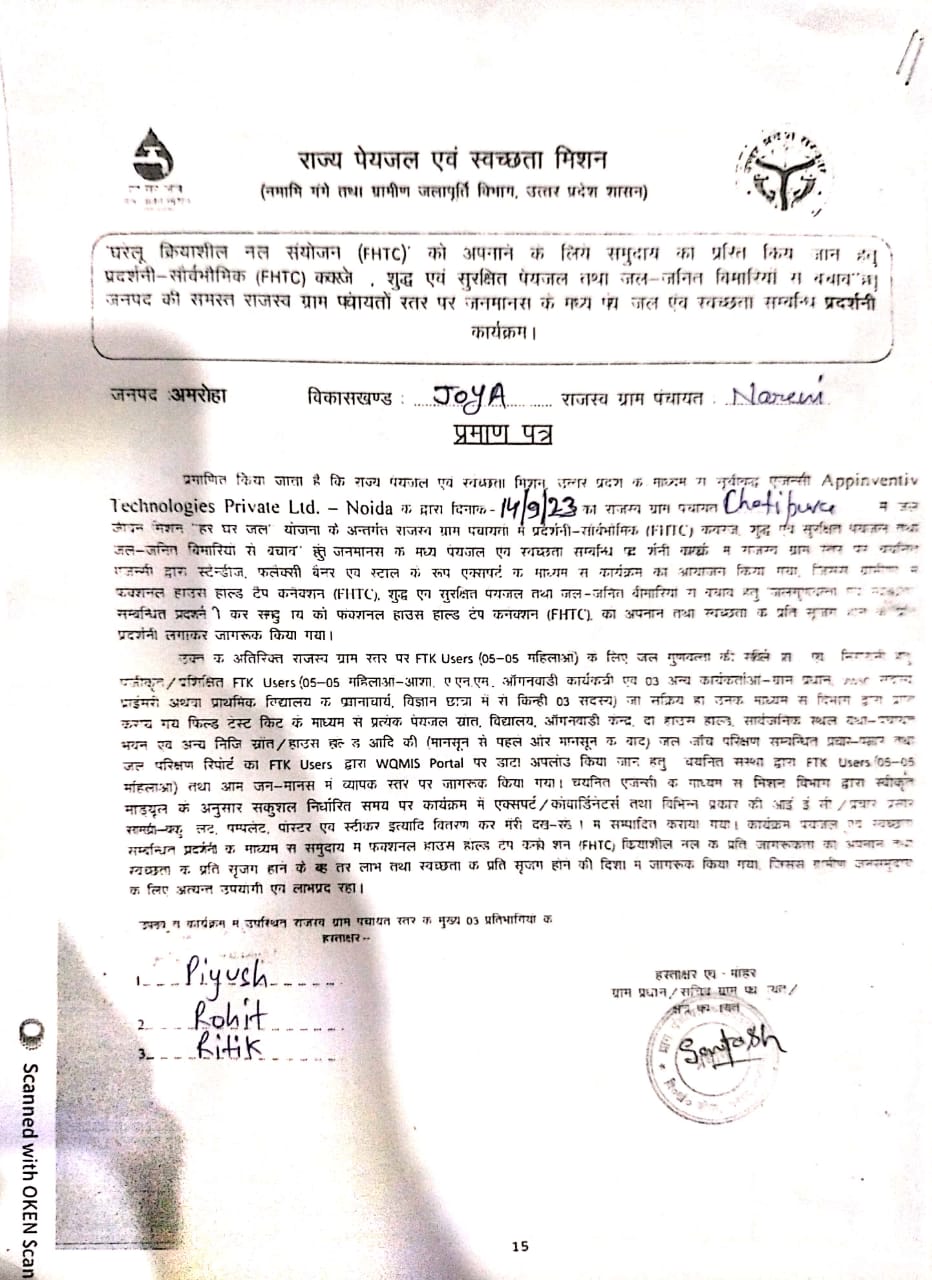 राज्य पेयजल एवं स्वच्छता मिशन
(नमामि गंगे तथा ग्रामीण जलापूर्ति विभाग, उत्तर प्रदेश शासन)
'घरेलू क्रियाशील नल संयोजन (FHTC)' को अपनाने के लिये समुदाय का प्ररित किय जान हतु
प्रदर्शनी-सार्वभौमिक (FHTC) कवरेज , शुद्ध एवं सुरक्षित पेयजल तथा जल-जनित बिमारियों स बचाव हतु
जनपद की समस्त राजस्व ग्राम पंचायतों स्तर पर जनमानस के मध्य पेय जल एंव स्वच्छता सम्बन्धि प्रदर्शनी
कार्यक्रम।
जनपद :अमरोहा विकासखण्ड : JOYA राजस्व ग्राम पंचायत : Nareni
प्रमाण पत्र
प्रमाणित किया जाता है कि राज्य पेयजल एवं स्वच्छता मिशन, उत्तर प्रदेश के माध्यम से सूचीबद्ध एजेन्सी Appinventiv
Technologies Private Ltd. – Noida के द्वारा दिनांक- 14/9/23 का राजस्व ग्राम पंचायत Chotipura में जल
जीवन मिशन "हर घर जल" योजना के अन्तर्गत राजस्व ग्राम पंचायतों में प्रदर्शनी-सार्वभौमिक (FHTC) कवरेज, शुद्ध एवं सुरक्षित पेयजल तथा
जल-जनित बिमारियों से बचाव हेतु जनमानस के मध्य पेयजल एवं स्वच्छता सम्बन्धि प्रदर्शनी में राजस्व ग्राम स्तर पर चयनित
एजेन्सी द्वारा स्टेन्डीज, फलेक्सी बैनर एवं स्टाल के रूप एक्सपर्ट के माध्यम से कार्यक्रम का आयोजन किया गया, जिसस ग्रामीण
फंक्शनल हाउस हाल्ड टैप कनेक्शन (FHTC), शुद्ध एवं सुरक्षित पेयजल तथा जल-जनित बीमारियों से बचाव हेतु
सम्बन्धित प्रदर्शनी कर समुदाय को फंक्शनल हाउस हाल्ड टैप कनेक्शन (FHTC), को अपनाने तथा स्वच्छता के प्रति सृजग
प्रदर्शनी लगाकर जागरूक किया गया।
उक्त के अतिरिक्त राजस्व ग्राम स्तर पर FTK Users (05-05 महिलाओं) के लिए जल गुणवत्ता की
पंजीकृत/प्रशिक्षित FTK Users (05-05 महिलाओं-आशा, ए.एन.एम., ऑगनवाडी कार्यकत्री एवं 03 अन्य कार्यकर्ताओं-ग्राम प्रधान,
प्राईमरी अथवा प्राथमिक विद्यालय के प्रधानाचार्य, विज्ञान छात्रा में से किन्ही 03 सदस्य) जो सक्रिय हो उनके माध्यम से विभाग द्वारा
कराये गये फिल्ड टेस्ट किट के माध्यम से प्रत्येक पेयजल स्रोत, विद्यालय, ऑगनवाडी केन्द्र, दो हाउस हाल्ड, सार्वजनिक स्थल
भवन एवं अन्य निजि स्रोत/हाउस हाल्ड आदि की (मानसून से पहले और मानसून के बाद) जल जॉच परिक्षण सम्बन्धित प्रचार-प्रसार तथा
जल परिक्षण रिपोर्ट को FTK Users द्वारा WQMIS Portal पर डाटा अपलोड किया जाने हेतु चयनित संस्था द्वारा FTK Users (05-05
महिलाओं) तथा आम जन-मानस में व्यापक स्तर पर जागरूक किया गया। चयनित एजेन्सी के माध्यम से मिशन विभाग द्वारा स्वीकृत
माड्यूल के अनुसार सकुशल निर्धारित समय पर कार्यक्रम में एक्सपर्ट/कोर्पाडिनेटर्स तथा विभिन्न प्रकार की आई ई सी/प्रचार प्रसार
सामग्री- पम्पलेट, पोस्टर एवं स्टीकर इत्यादि वितरण कर मेरी देख-रेख में सम्पादित कराया गया। कार्यक्रम पेयजल एवं स्वच्छता
सम्बन्धित प्रदर्शनी के माध्यम से समुदाय में फंक्शनल हाउस हाल्ड टैप कनेक्शन (FHTC) क्रियाशील नल के प्रति जागरूकता का अपनाने तथा
स्वच्छता के प्रति सृजग होने के बेहतर लाभ तथा स्वच्छता के प्रति सृजग होने की दिशा में जागरूक किया गया, जिसस ग्रामीण जनसमुदाय
के लिए अत्यन्त उपयोगी एवं लाभप्रद रहा।
उपरोक्त कार्यक्रम में उपस्थित राजस्व ग्राम पंचायत स्तर के मुख्य 03 प्रतिभागियों के
हस्ताक्षर--
1. Piyush
2. Rohit
3. Ritik
हस्ताक्षर एवं मोहर
ग्राम प्रधान/सचिव ग्राम पंचायत/
Santosh
15
Scanned with OKEN Scan